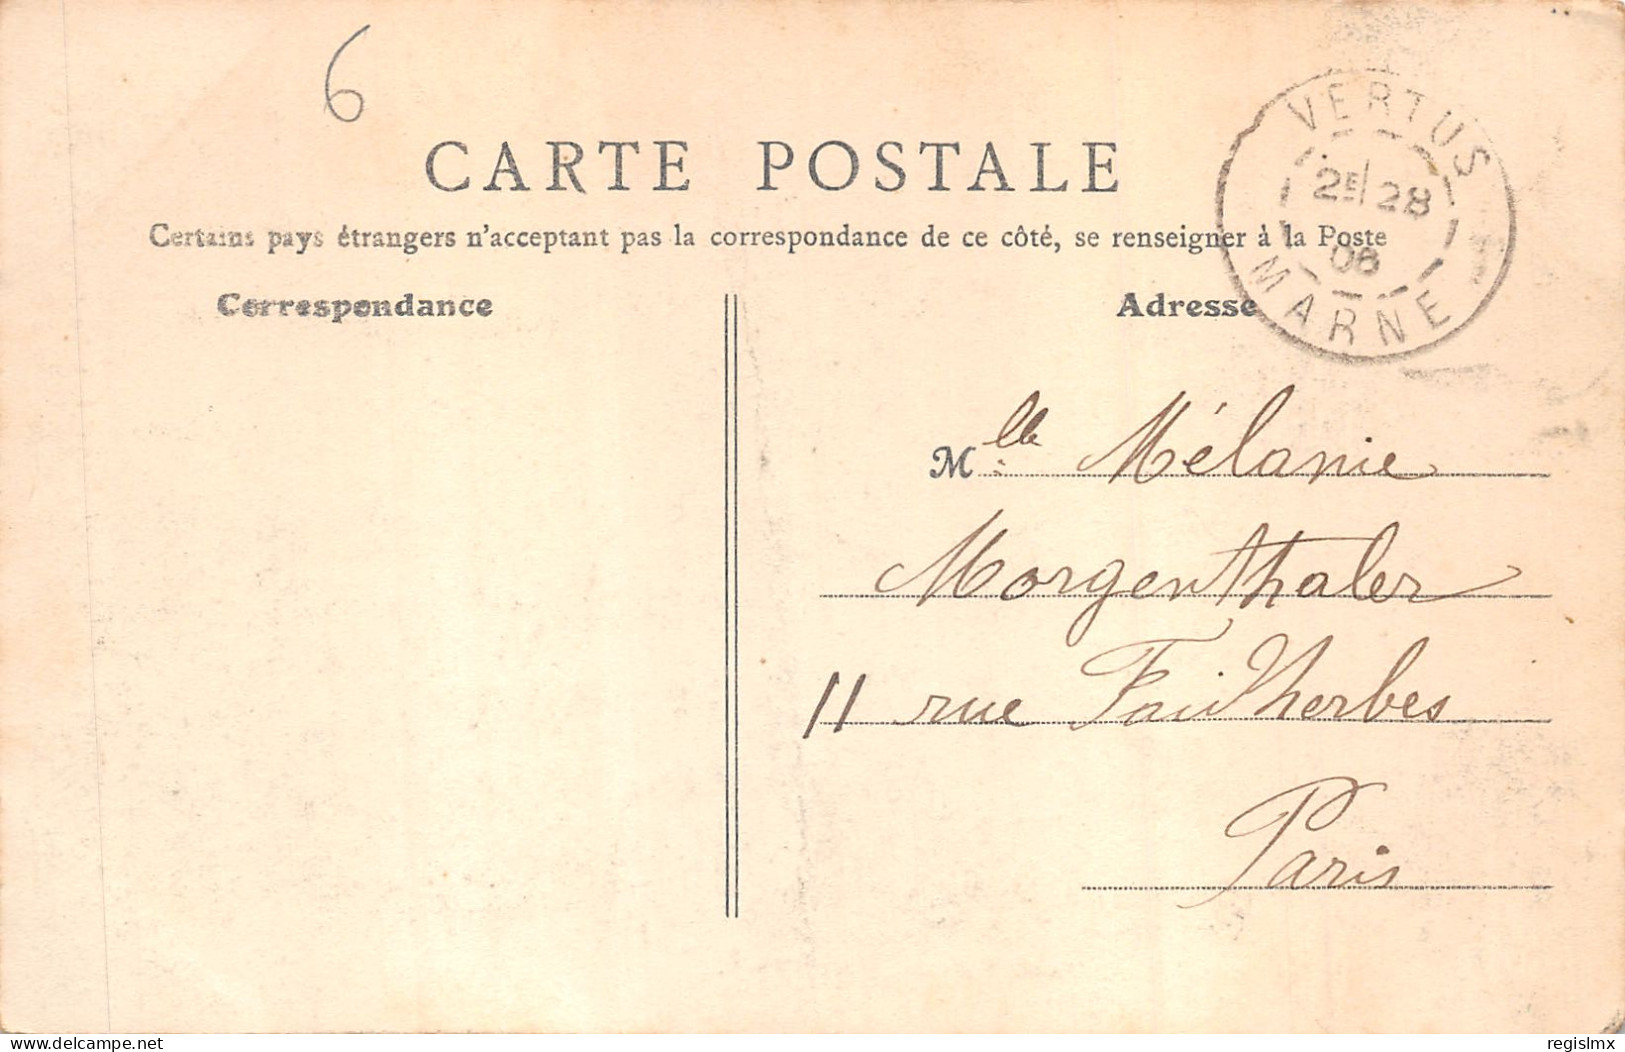 6
CARTE POSTALE
Certains pays étrangers n'acceptant pas la correspondance de ce côté, se renseigner à la Poste
Correspondance
Adresse
VERTUS
2E 28
08
MARNE
Mlle Mélanie
Morgenthaler
11 rue Faidherbes
Paris
www.delcampe.net
regislmx